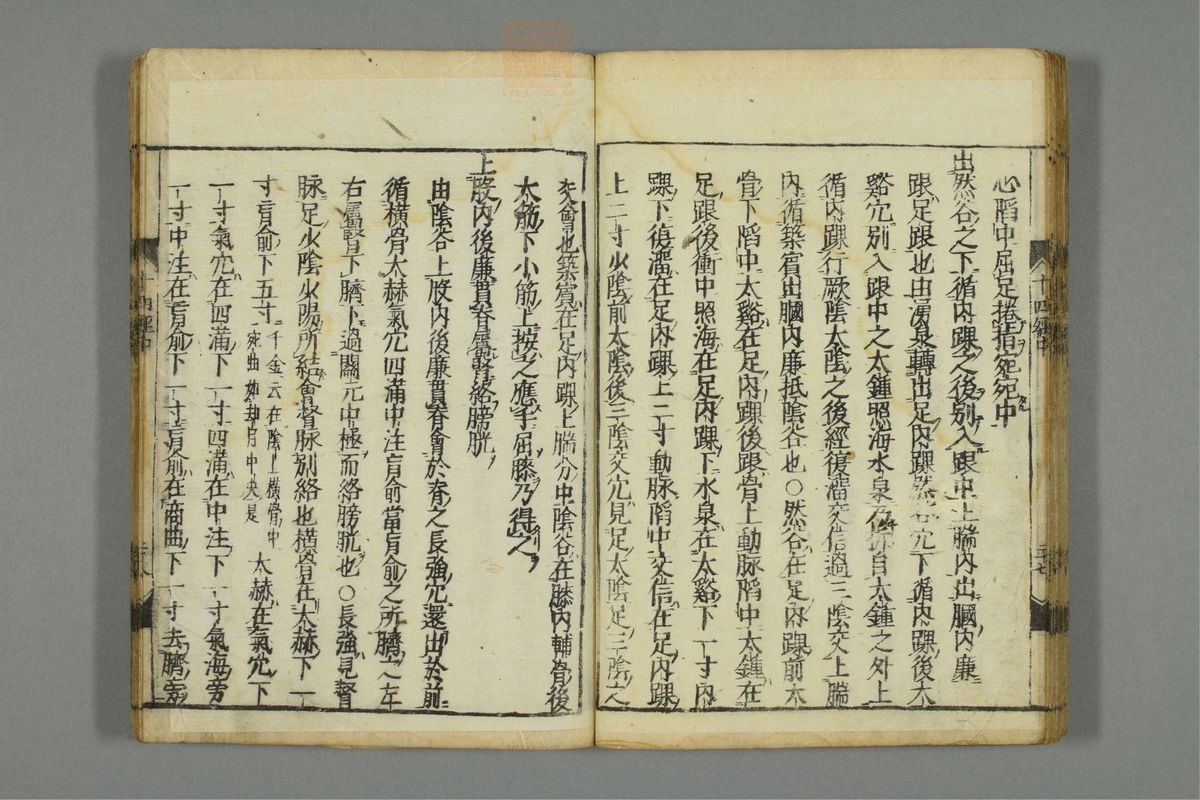 心陷中屈足捲指宛宛中
出然谷之下循内踝之後別入跟中上腨内出膕内廉
跟足跟也由湧泉轉出足内踝然谷穴下循内踝後太
谿穴別入跟中之太鍾照海水泉乃折自太鍾之外上
循内踝行厥陰太陰之後經復溜交信過三陰交上腨
内循築賓出膕内廉抵陰谷也〇然谷在足内踝前大
骨下陷中太谿在足内踝後跟骨上動脉陷中太鍾在
足跟後衝中照海在足内踝下水泉在太谿下一寸内
踝下復溜在足内踝上二寸動脉陷中交信在足内踝
上二寸少陰前太陰後三陰交穴見足太陰足三陰之
交會也築賓在足内踝上腨分中陰谷在膝内輔骨後
大筋下小筋上按之應手屈膝乃得之
上股内後廉貫脊屬腎絡膀胱
由陰谷上股内後廉貫脊會於脊之長強穴還出於前
循横骨大赫氣穴四滿中注肓俞當肓俞之所臍之左
右屬腎下臍下過關元中極而絡膀胱也〇長強見督
脉足少陰少陽所結會督脉別絡也横骨在大赫下一
寸肓俞下五寸千金云在陰上横骨中宛曲如却月中央是大赫在氣穴下
一寸氣穴在四滿下一寸四滿在中注下一寸氣海旁
一寸中注在肓俞下一寸肓俞在商曲下一寸去臍旁
十四經中
三十七
十四經中